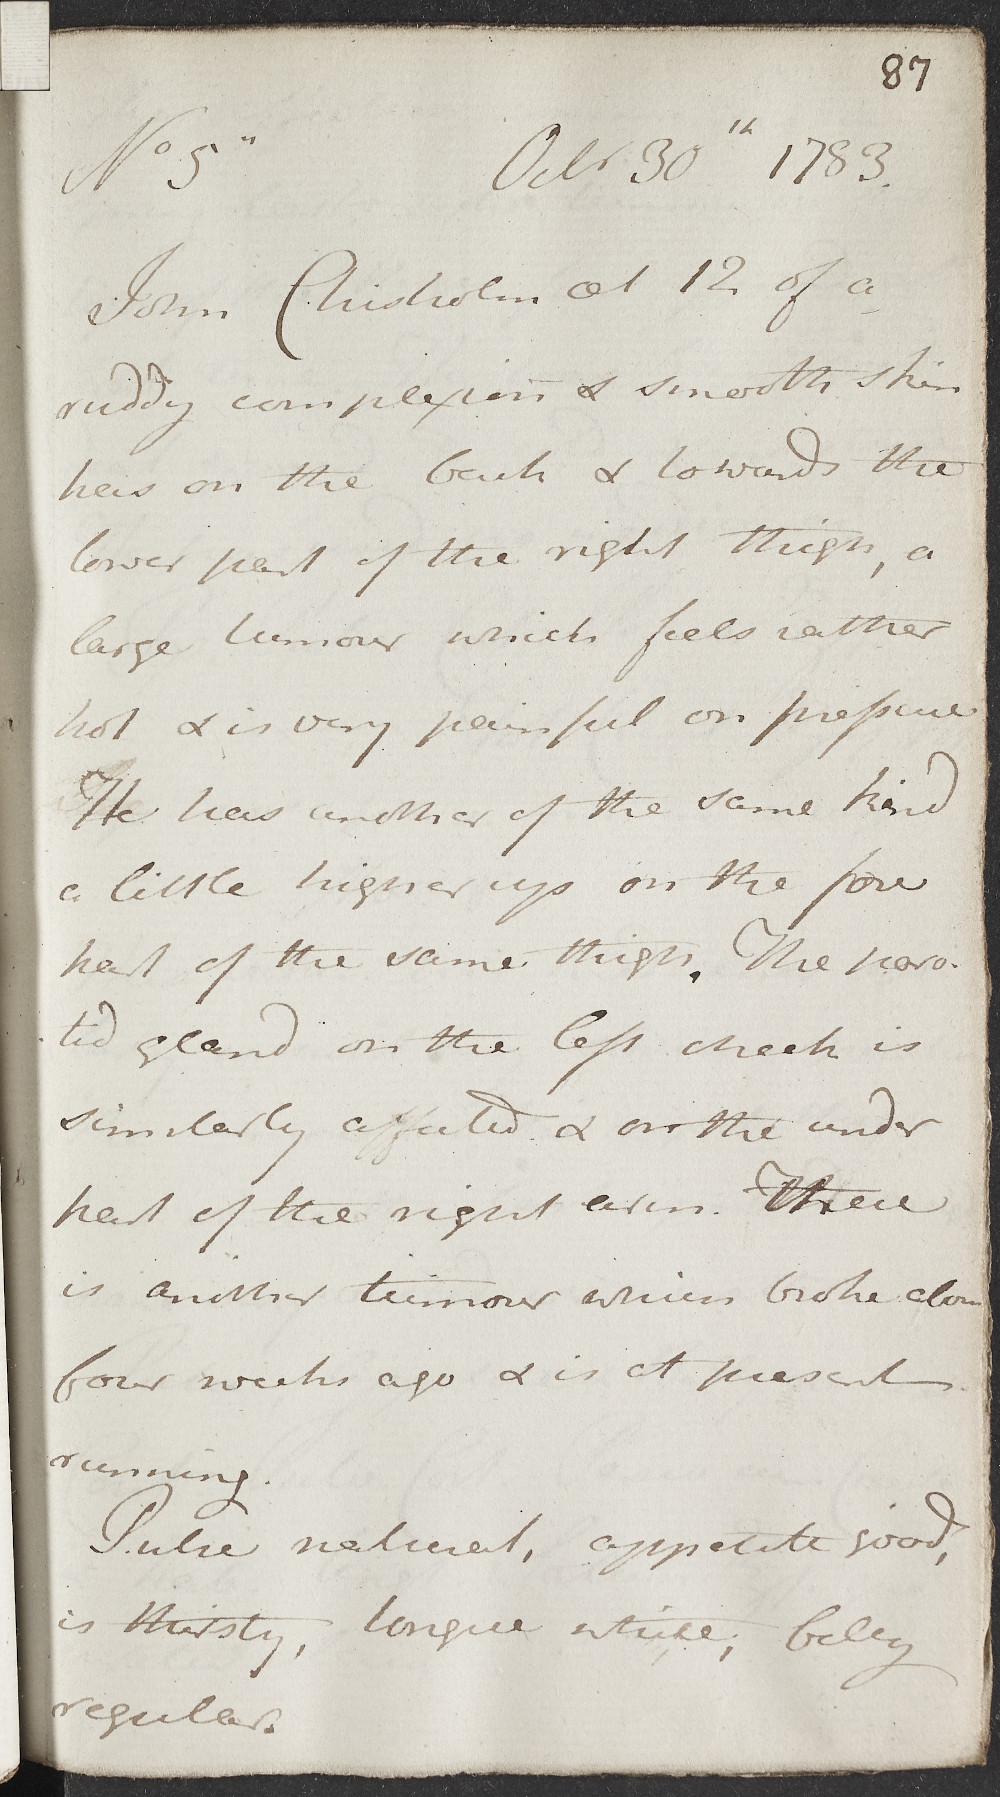 87
No 5" Octr 30th 1783.
John Chisholm æt 12 of a
ruddy complexion & smooth skin
has on the back & towards the
lower part of the right thigh, a
large tumour which feels rather
hot & is very painful on pressure
He has another of the same kind
a little higher up on the fore
part of the same thigh. The paro-
tid gland on the left cheek is
similarly affected & on the under
part of the right arm. There
is another tumour which broke about
four weeks ago & is at present
running.
Pulse natural, appetite good,
is thirsty, tongue white, belly
regular.